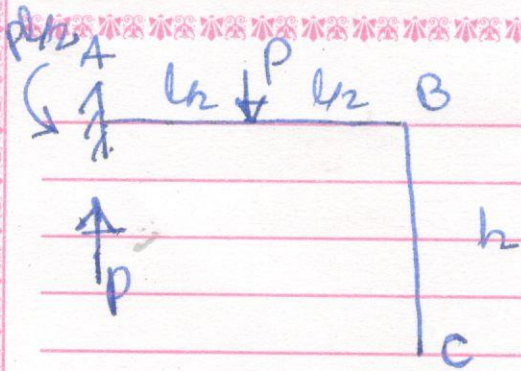 Pl/2 A
l/2 P l/2 B
h
P
C